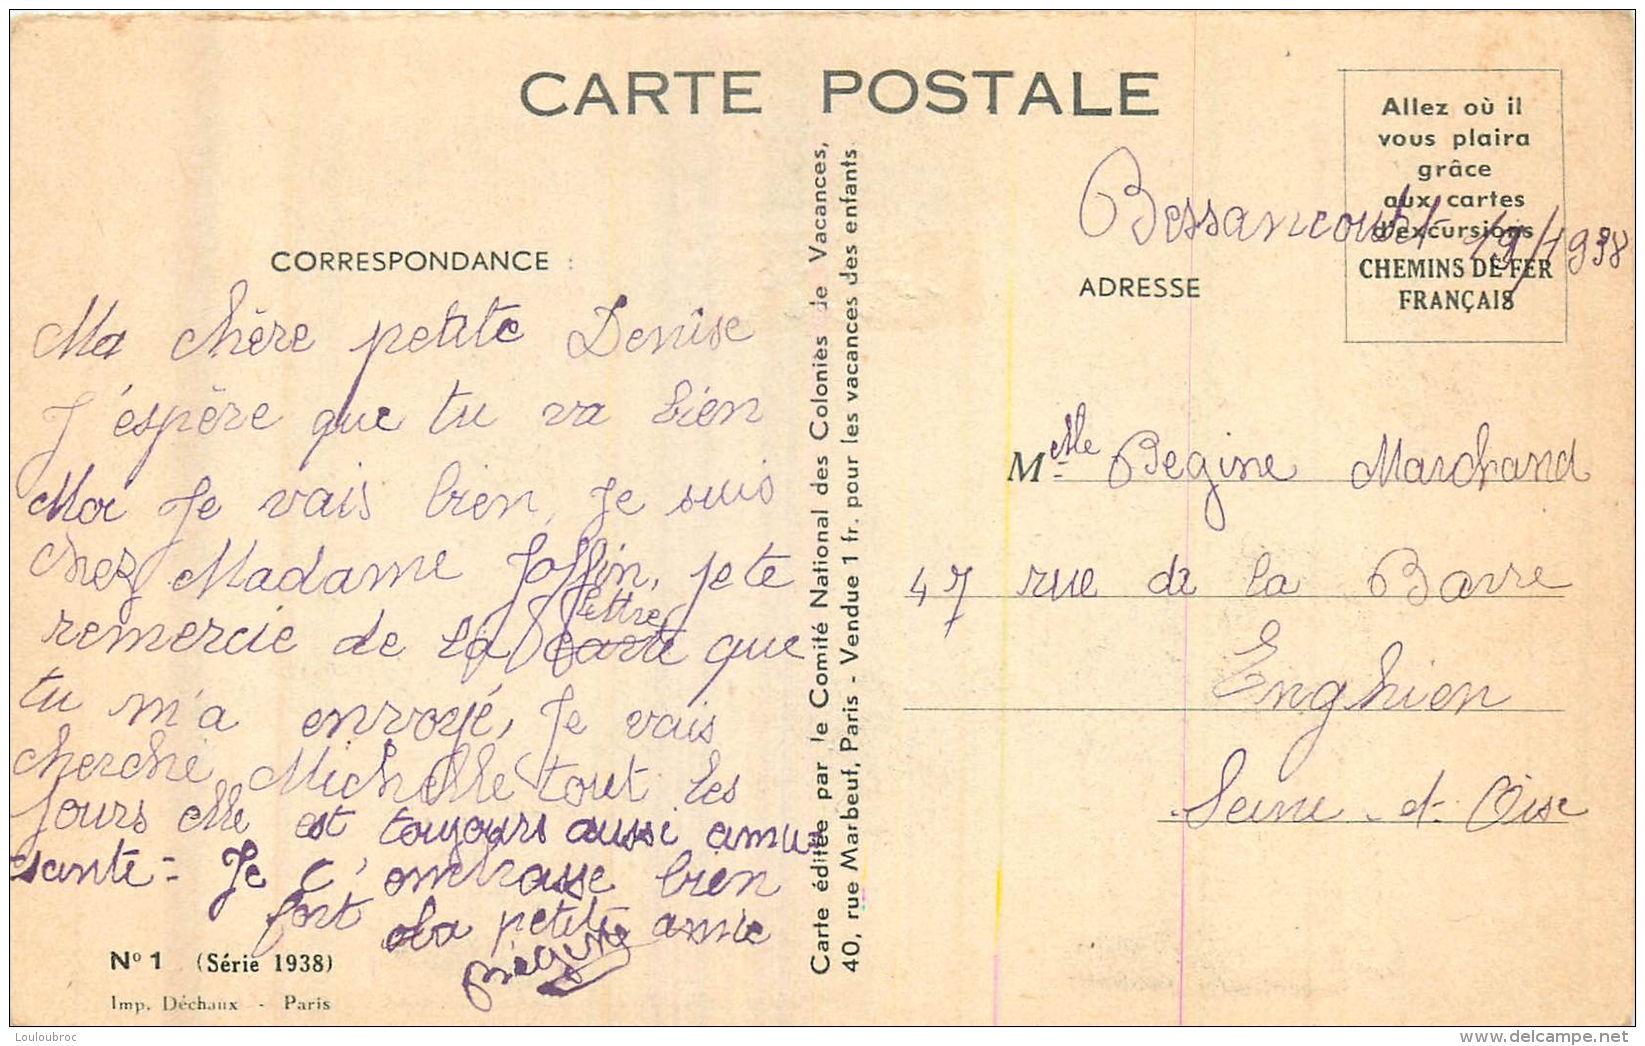 CARTE POSTALE
Allez où il
vous plaira
grâce
aux cartes
d'excursions
CHEMINS DE FER
FRANÇAIS
Bessancourt 1938
CORRESPONDANCE :
ADRESSE
Ma chère petite Denise
J'espère que tu va bien
Moi Je vais bien, Je suis
chez Madame Joffin, je te
remercie de la carte lettre que
tu m'a envoyé, Je vais
cherché Michelle tout les
Jours elle est toujours aussi amu-
sante - Je t'ombrasse bien
fort ta petite amie
Régine
Melle Régine Marchand
47 rue de la Barre
Enghien
Seine-et-Oise
Carte éditée par le Comité National des Colonies de Vacances,
40, rue Marbeuf, Paris - Vendue 1 fr. pour les vacances des enfants
N° 1 (Série 1938)
Imp. Déchaux - Paris
Louloubroc
www.delcampe.net